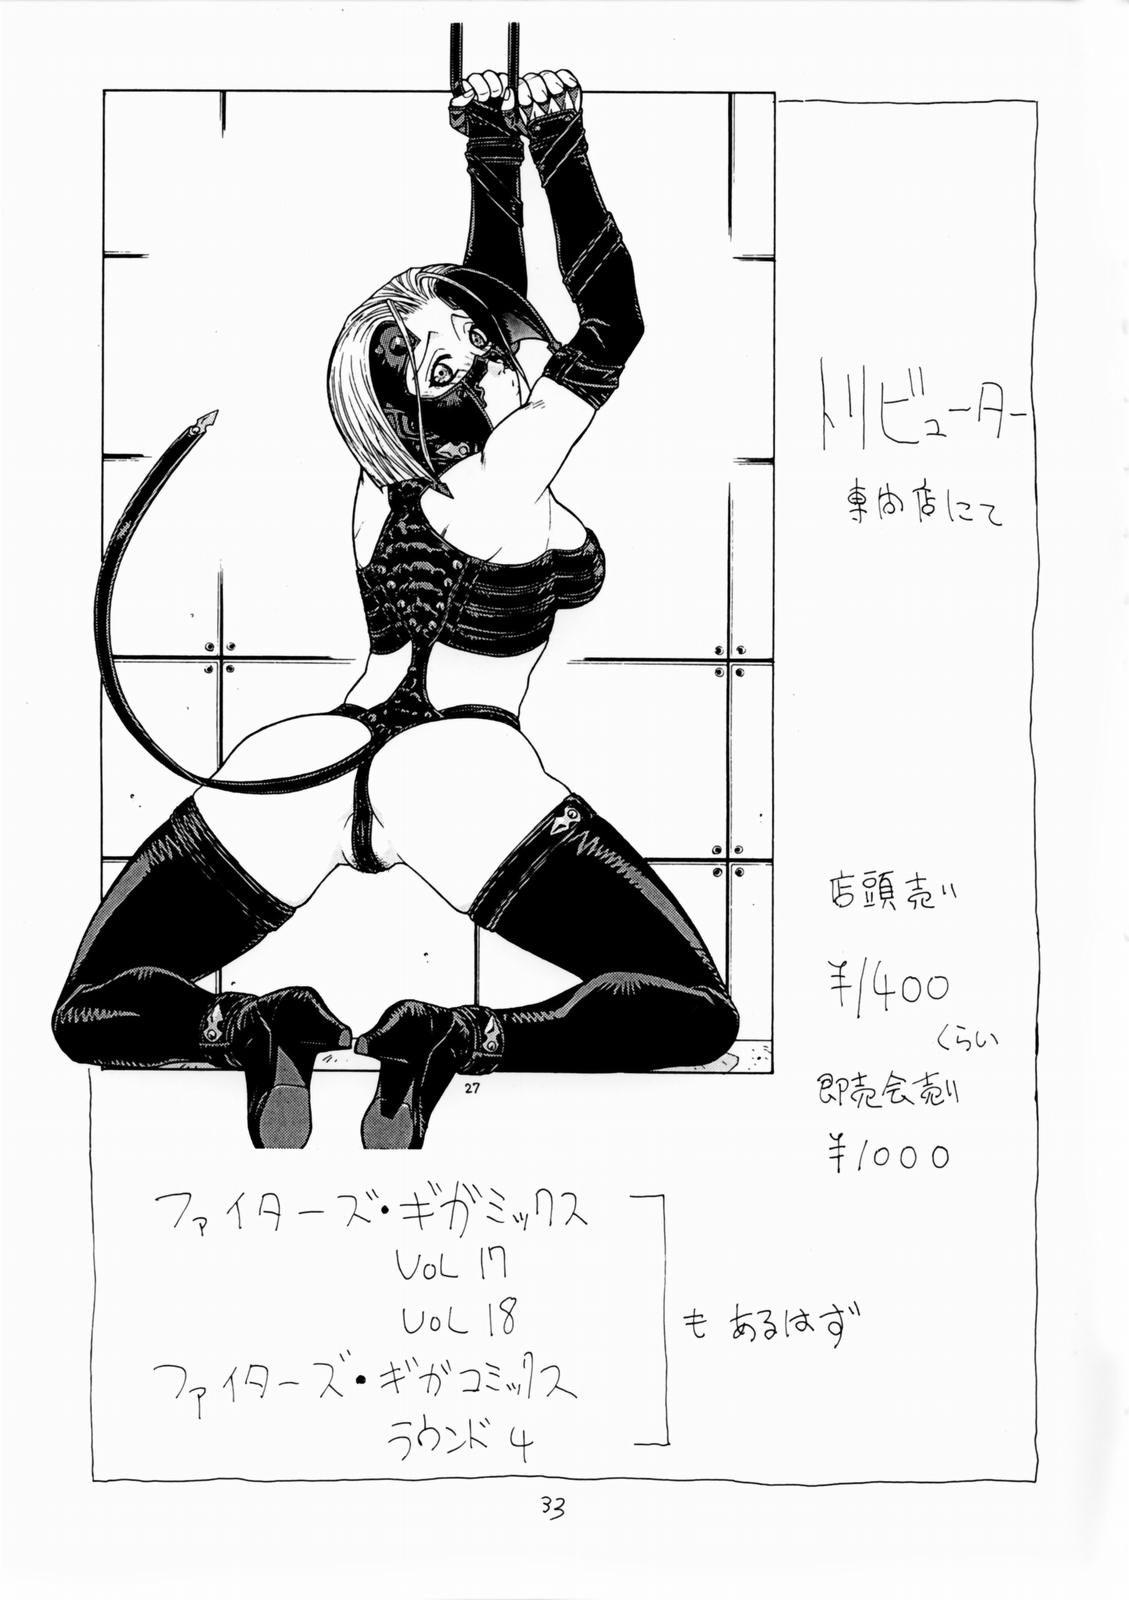 トリビューター
専門店にて
店頭売り
¥1400
くらい
即売会売り
¥1000
27
ファイターズ・ギガミックス
VOL 17
VOL 18
も あるはず
ファイターズ・ギガコミックス
ラウンド 4
33